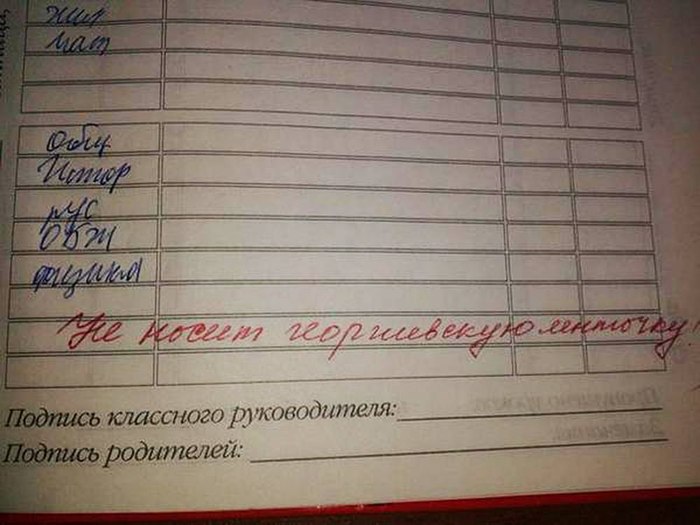 хим
мат
Общ
Истор
рус
ОБЖ
физика
Не носит георгиевскую ленточку!
Подпись классного руководителя:
Подпись родителей: